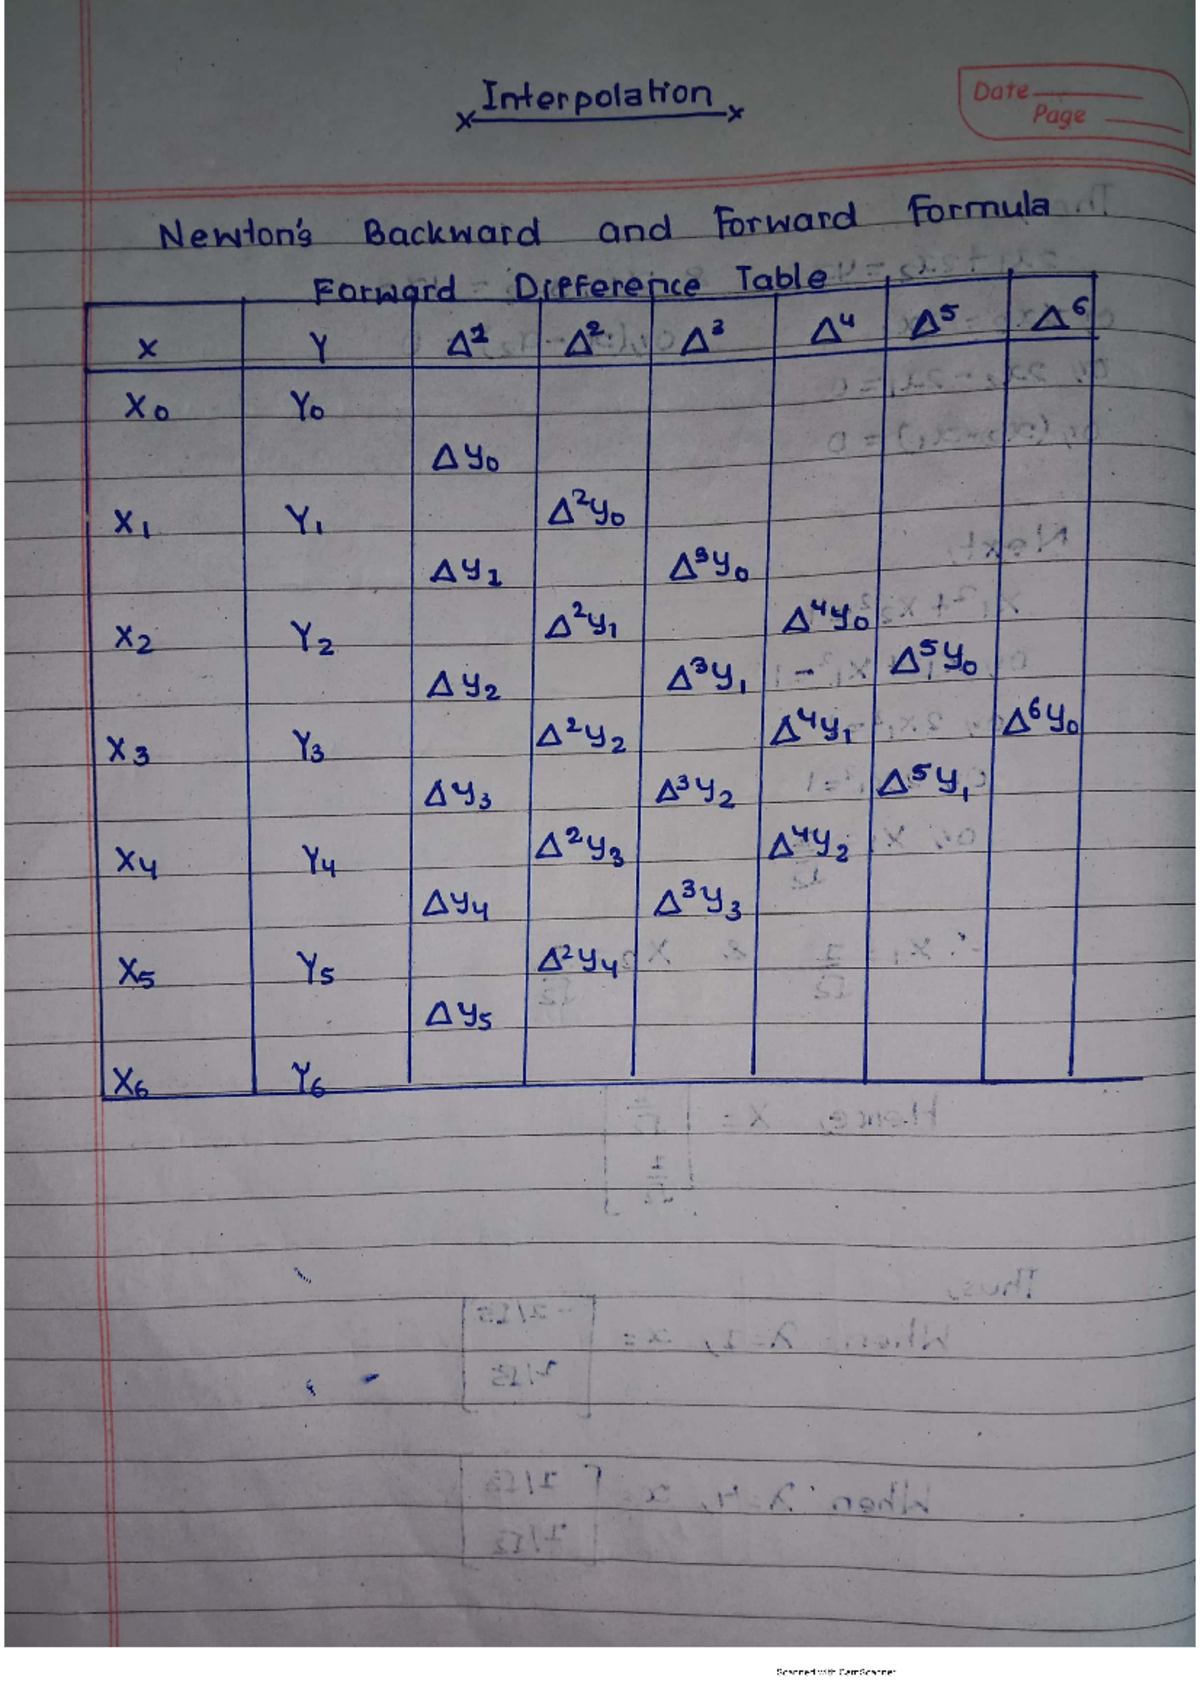 Interpolation
Date
Page
Newton's Backward and Forward Formula
Forward Difference Table
X Y Δ1 Δ2 Δ3 Δ4 Δ5 Δ6
X0 Y0
Δy0
X1 Y1 Δ2y0
Δy1 Δ3y0
X2 Y2 Δ2y1 Δ4y0
Δy2 Δ3y1 Δ5y0
X3 Y3 Δ2y2 Δ4y1 Δ6y0
Δy3 Δ3y2 Δ5y1
X4 Y4 Δ2y3 Δ4y2
Δy4 Δ3y3
X5 Y5 Δ2y4
Δy5
X6 Y6
Scanned with CamScanner